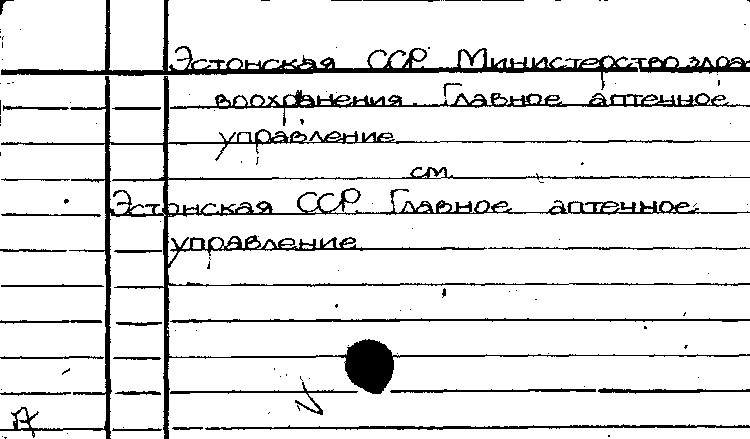 Эстонская ССР. Министерство здра-
воохранения. Главное аптечное
управление
см.
Эстонская ССР. Главное аптечное
управление.